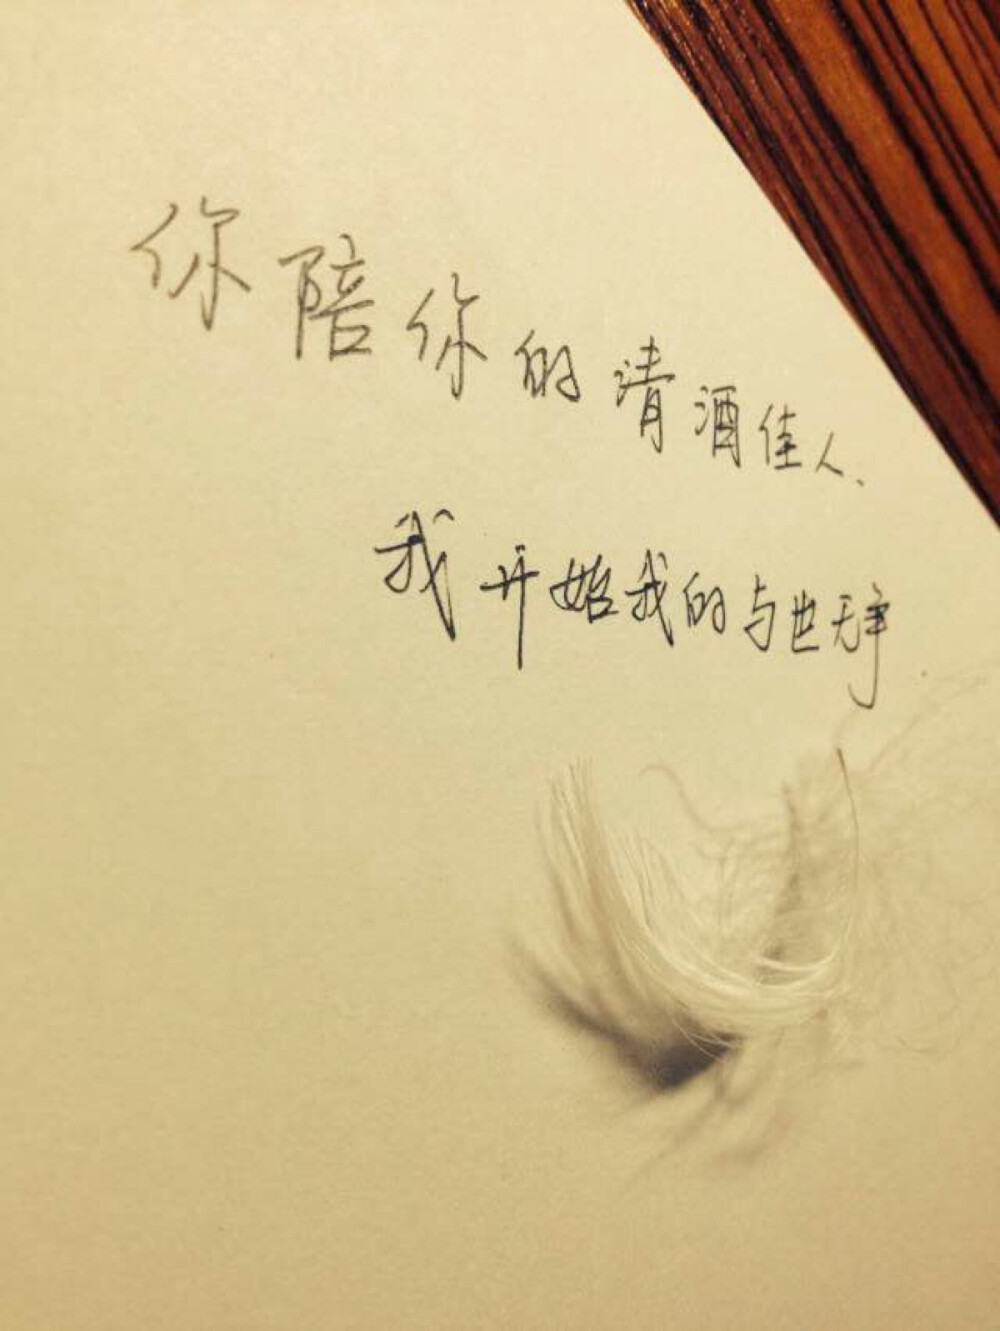 你陪你的清酒佳人、
我开始我的与世无争